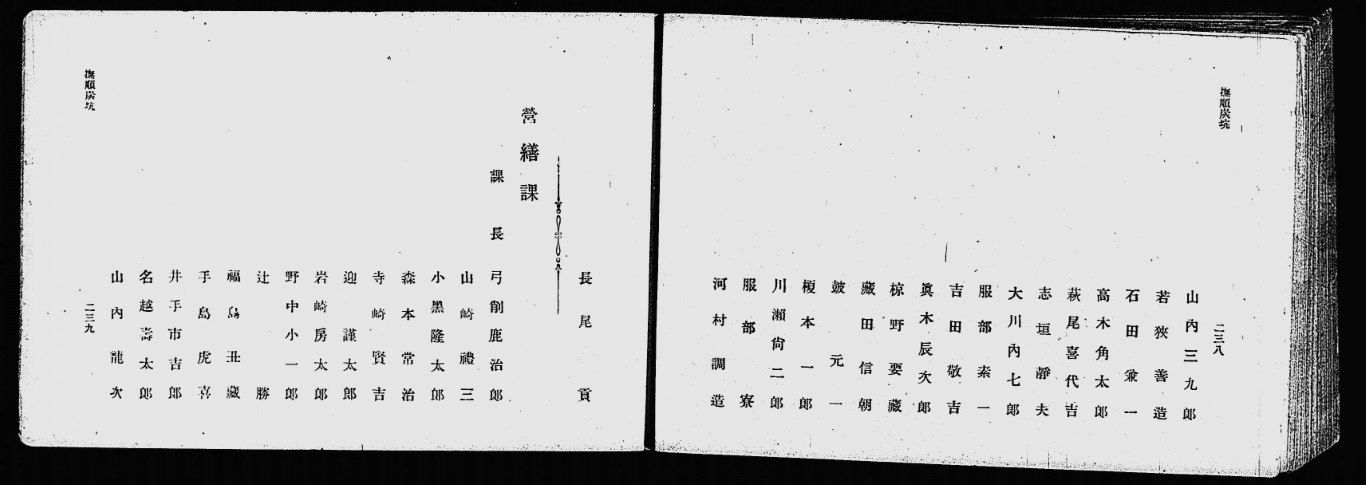 撫順炭坑
二三八
山內三九郎
若狹善造
石田兼一
高木角太郎
萩尾喜代吉
志垣靜夫
大川內七郎
服部素一
吉田敬吉
眞木辰次郎
椋野要藏
藏田信朝
皷元一
榎本一郎
川瀨尙二郎
服部寮
河村調造
長尾貢
營繕課
課長 弓削鹿治郎
山崎禮三
小黑隆太郎
森本常治
寺崎賢吉
迎謹太郎
岩崎房太郎
野中小一郎
辻勝
福島丑藏
手島虎喜
井手市吉郎
名越壽太郎
山內龍次
撫順炭坑
二三九